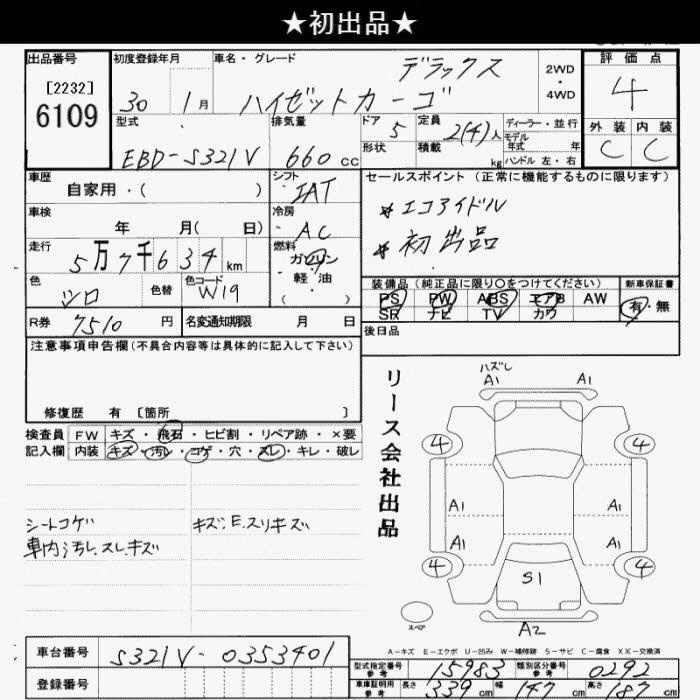 ★初出品★
出品番号 初度登録年月 車名・グレード デラックス 2WD・4WD 評価点
[2232]
6109 30 1月 ハイゼットカーゴ 4
型式 排気量 ドア 5 定員 2(4)人 ディーラー・並行 外装 内装
モデル年式 年
EBD-S321V 660cc 形状 積載 kg ハンドル 左・右 C C
車歴 自家用・( ) シフト IAT セールスポイント(正常に機能するものに限ります)
車検 年 月( 日) 冷房 AC *エコアイドル
走行 5万7千634km 燃料 ガソリン *初出品
軽油
( )
色 シロ 色替 色コード W19 装備品(純正品に限り〇をつけてください) 新車保証書
PS PW ABS エアB AW 有・無
R券 7510円 名変通知期限 月 日 SR ナビ TV カワ
注意事項申告欄(不具合内容等は具体的に記入して下さい) 後日品
修復歴 有 [箇所 ]
検査員 FW キズ・飛石・ヒビ割・リペア跡・×要
記入欄 内装 キズ・汚レ・コゲ・穴・スレ・キレ・破レ
シートコゲ キズ、E.スリキズ
車内汚レ.スレ.キズ
リース会社出品
ハズレ
A1 A1
4 4
A1 A1
A1 A1
4 4
S1
スペア
A2
A-キズ E-エクボ U-凹み W-補修跡 S-サビ C-腐食 XX-交換済
車台番号 S321V-0353401
型式指定番号 参考 15983 類別区分番号 参考 0292
登録番号 車庫証明用 参考 長さ 339cm 幅 147cm 高さ 187cm